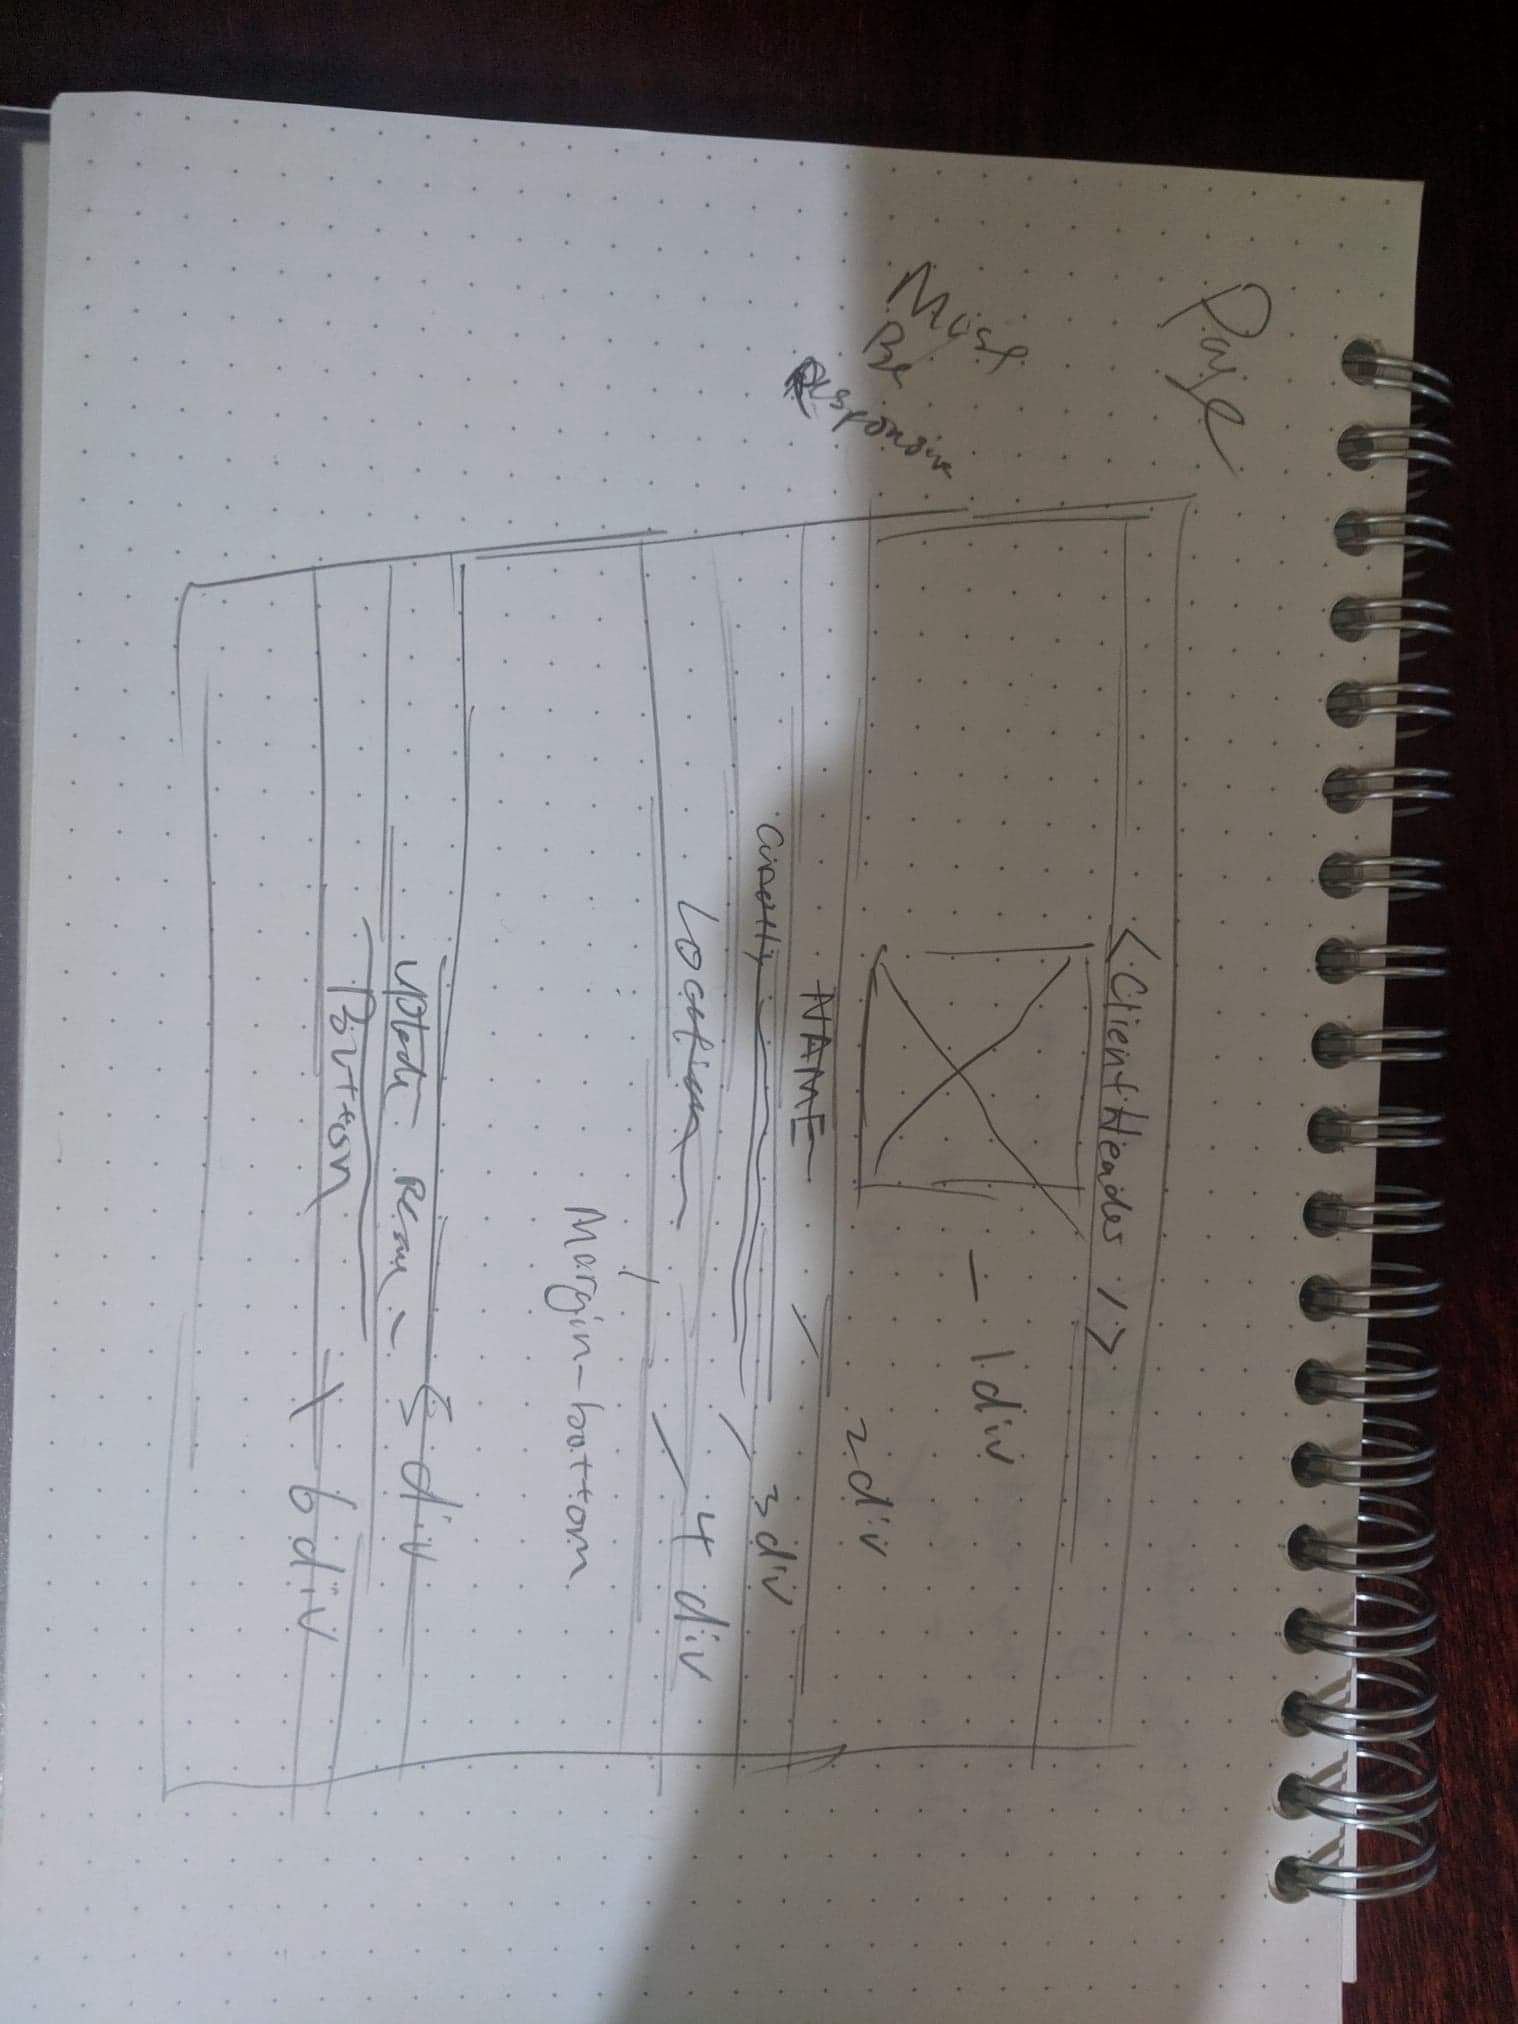 Page
Must
Be
Responsive
<ClientHeader />
- 1 div
NAME
2 div
Currently
3 div
Location
4 div
Margin-bottom
5 div
Button
6 div